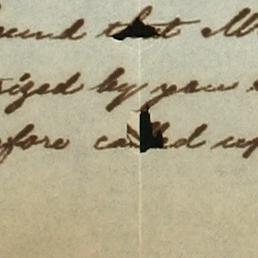 ound that M
rized by your
efore called up